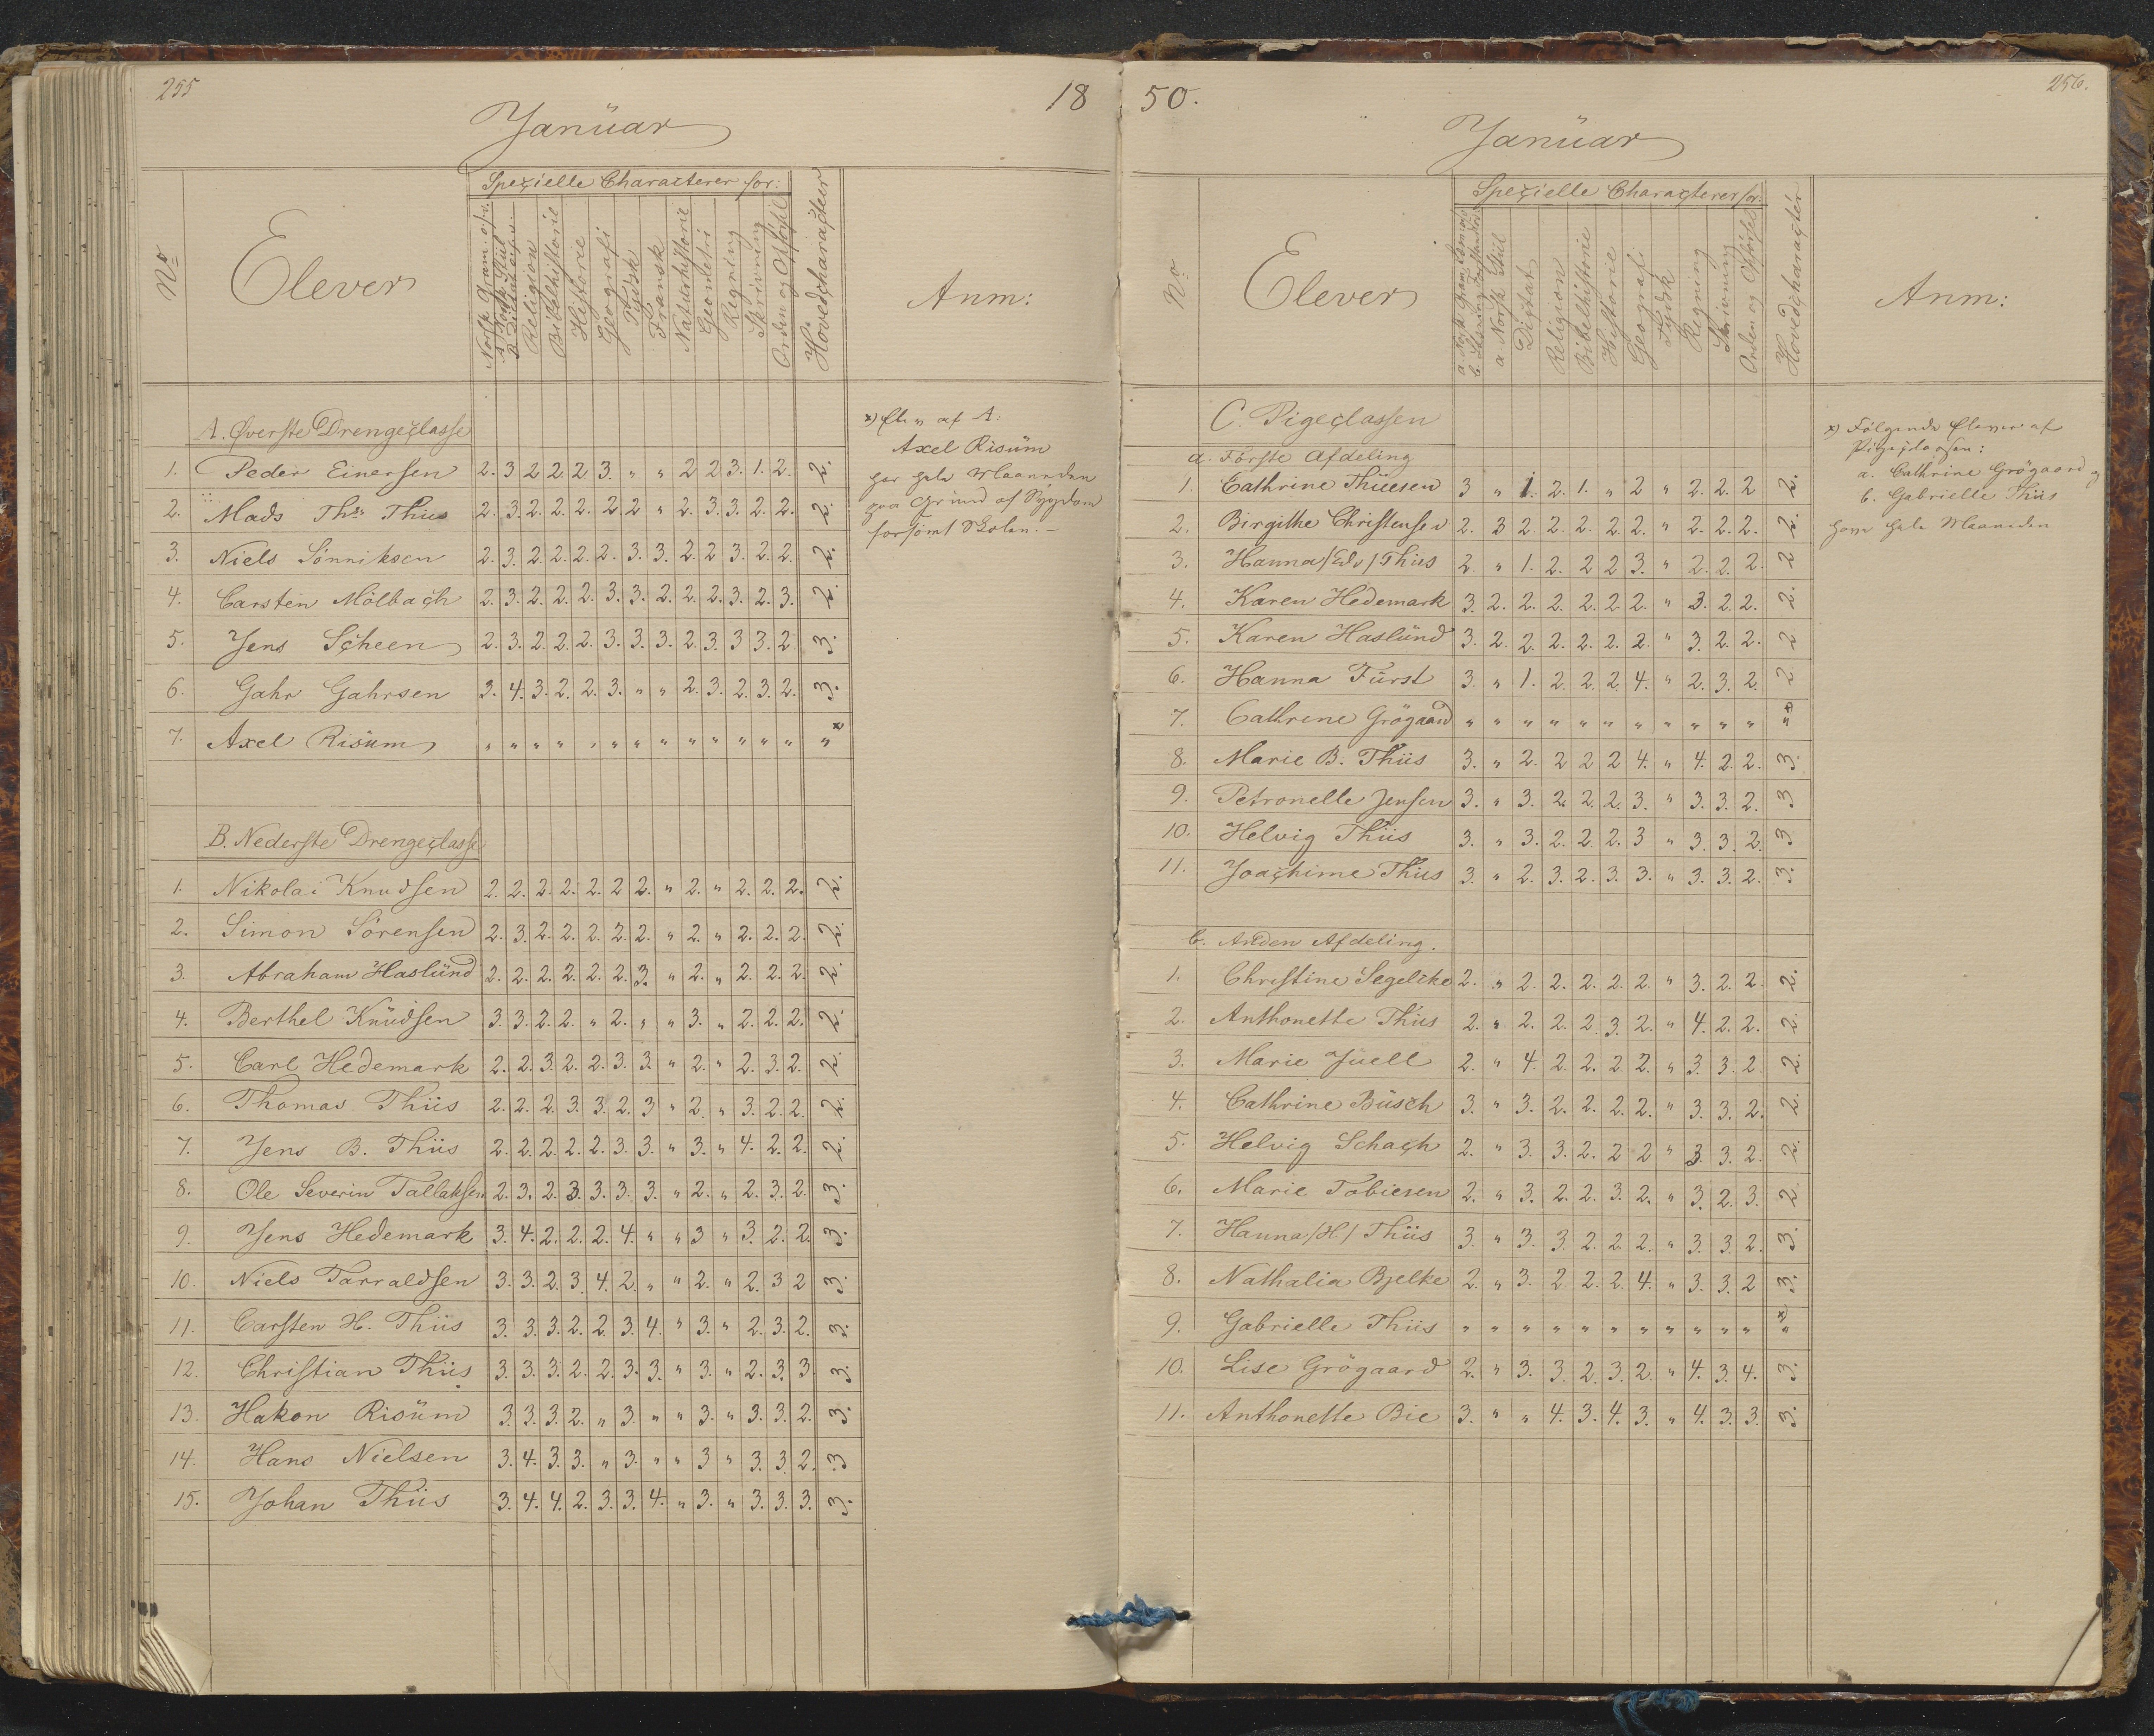 255
18
Januar
No
Elever
Spezielle Characterer for:
Religion
Bibelhistorie
Historie
Geografi
Tydsk
Fransk
Naturhistorie
Geometri
Regning
Skrivning
Orden og Opførsel
Hovedcharacter
Anm:
A. Øverste Drengeclasse
1. Peder Einersen 2. 3 2 2 2 3. " " 2 2 3. 1. 2. 2.
2. Mads Ths Thiis 2. 3. 2. 2. 2. 2. 2 " 2. 3. 3. 2. 2. 2.
3. Niels Sönniksen 2. 3. 2. 2. 2. 2. 3. 3. 2. 2 3. 2. 2. 2.
4. Carsten Mölbach 2. 3. 2. 2. 2. 3. 3. 2. 2. 2. 3. 2. 3. 2.
5. Jens Scheen 2. 3. 2. 2. 2. 3. 3. 3. 2. 3. 3 3. 2. 3.
6. Gahr Gahrsen 3. 4. 3. 2. 2. 3. " " 2. 3. 2. 3. 2. 3.
7. Axel Risüm " " " " " " " " " " " " " " x
x) af A.
Axel Risüm
har hele Maaneden
paa Grund af Sygdom
forsömt Skolen. –
B. Nederste Drengeclasse
1. Nikolai Knudsen 2. 2. 2. 2. 2. 2 2. " 2. " 2. 2. 2. 2.
2. Simon Sörensen 2. 3. 2. 2. 2. 2. 2. " 2. " 2. 2. 2. 2.
3. Abraham Haslünd 2. 2. 2. 2. 2. 2. 3. " 2. " 2. 2. 2. 2.
4. Berthel Knüdsen 3. 3. 2. 2. " 2. " " 3. " 2. 2. 2. 2.
5. Carl Hedemark 2. 2. 3. 2. 2. 3. 3. " 2. " 2. 3. 2. 2.
6. Thomas Thiis 2. 2. 2. 3. 3. 2. 3 " 2. " 3. 2. 2. 2.
7. Jens B. Thiis 2. 2. 2. 2. 2. 3. 3. " 3. " 4. 2. 2. 2.
8. Ole Severin Tallaksen 2. 3. 2. 3. 3. 3. 3. " 2. " 2. 3. 2. 3.
9. Jens Hedemark 3. 4. 2. 2. 2. 4. " " 3 " 3. 2. 2. 3.
10. Niels Tarraldsen 3. 3. 2. 3. 4. 2. " " 2. " 2. 3 2 3.
11. Carsten H. Thiis 3. 3. 3. 2. 2. 3. 4. " 3. " 2. 3. 2. 3.
12. Christian Thiis 3. 3. 3. 2. 2. 3. 3. " 3. " 2. 3. 3. 3.
13. Hakon Risüm 3. 3. 3. 2. " 3. " " 3. " 3. 3. 2. 3.
14. Hans Nielsen 3. 4. 3. 3. " 3. " " 3 " 3. 3. 2. 3
15. Johan Thiis 3. 4. 4. 2. 3. 3. 4. " 3. " 3. 3. 3. 3.
50.
256.
Januar
No
Elever
Spezielle Characterer for:
a. Norsk Stiil
Digtat
Religion
Bibelhistorie
Historie
Geografi
Tydsk
Regning
Skrivning
Orden og Opførsel
Hovedcharacter
Anm:
C. Pigeclassen
a. Förste Afdeling
1. Cathrine Thüesen 3 " 1. 2. 1. " 2 " 2. 2. 2 2.
2. Birgithe Christensen 2. 3 2. 2. 2. 2. 2. " 2. 2. 2. 2.
3. Hanna /Edv/ Thiis 2. " 1. 2. 2 2 3. " 2. 2. 2. 2
4. Karen Hedemark 3. 2. 2. 2. 2. 2. 2. " 3. 2. 2. 2.
5. Karen Haslünd 3. 2. 2. 2. 2. 2. 2. " 3. 2. 2. 2
6. Hanna Fürst 3. " 1. 2. 2. 2. 4. " 2. 3. 2. 2
7. Cathrine Grögaard " " " " " " " " " " " " x)
8. Marie B. Thiis 3. " 2. 2 2 2 4. " 4. 2. 2. 3.
9. Petronelle Jensen 3. " 3. 2. 2. 2. 3. " 3. 3. 2. 3
10. Helvig Thiis 3. " 3. 2. 2. 2. 3 " 3. 3. 2. 3
11. Joachime Thiis 3. " 2. 3. 2. 3. 3. " 3. 3. 2. 3.
x) Fölgende Elever af
Pigeclassen:
a. Cathrine Grögaard og
b. Gabrielle Thiis
hele Maaneden
b. Anden Afdeling.
1. Christine Segelcke 2. " 2. 2. 2. 2. 2. " 3. 2. 2. 2.
2. Anthonette Thiis 2. " 2. 2. 2. 3. 2. " 4. 2. 2. 2.
3. Marie Jüell 2. " 4. 2. 2. 2. 2. " 3. 3. 2. 2.
4. Cathrine Büsch 3. " 3. 2. 2. 2. 2. " 3. 3. 2. 2.
5. Helvig Schach 2. " 3. 3. 2. 2 2 " 3. 3. 2. 2.
6. Marie Tobiesen 2. " 3. 2. 2. 3. 2. " 3. 2. 3. 2.
7. Hanna /H/ Thiis 3. " 3. 3. 2. 2. 2. " 3. 3. 2. 3.
8. Nathalia Bjelke 2. " 3. 2. 2. 2. 4. " 3. 3. 2 3.
9. Gabrielle Thiis " " " " " " " " " " " " x)
10. Lise Grögaard 2. " 3. 3. 2. 3. 2. " 4. 3. 4. 3.
11. Anthonette Bie 3. " " 4. 3. 4. 3. " 4. 3. 3. 3.